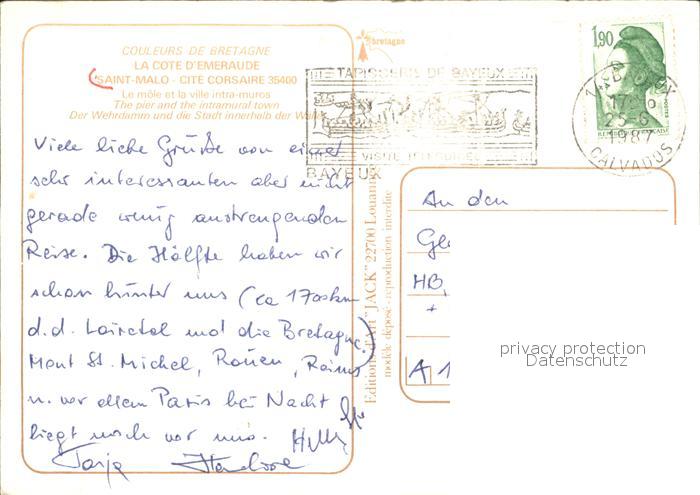 COULEURS DE BRETAGNE
LA COTE D'EMERAUDE
SAINT-MALO - CITÉ CORSAIRE 35400
Le môle et la ville intra-muros
The pier and the intramural town
Der Wehrdamm und die Stadt innerhalb der Wälle
bretagne
TAPISSERIE DE BAYEUX
BAYEUX
1,90
17
25-6
1987
CALVADOS
Viele liebe Grüße von einer
sehr interessanten aber nicht
gerade wenig anstrengenden
Reise. Die Hälfte haben wir
schon hinter uns (ca 1700km
d.d. Loiretal und die Bretagne.)
Mont St. Michel, Rouen, Reims
u. vor allem Paris bei Nacht
liegt noch vor uns.
Tanja
Editions d'Art "JACK" 22700 Louannec
modèle déposé - reproduction interdite
An den
HB,
+
A 1
privacy protection
Datenschutz